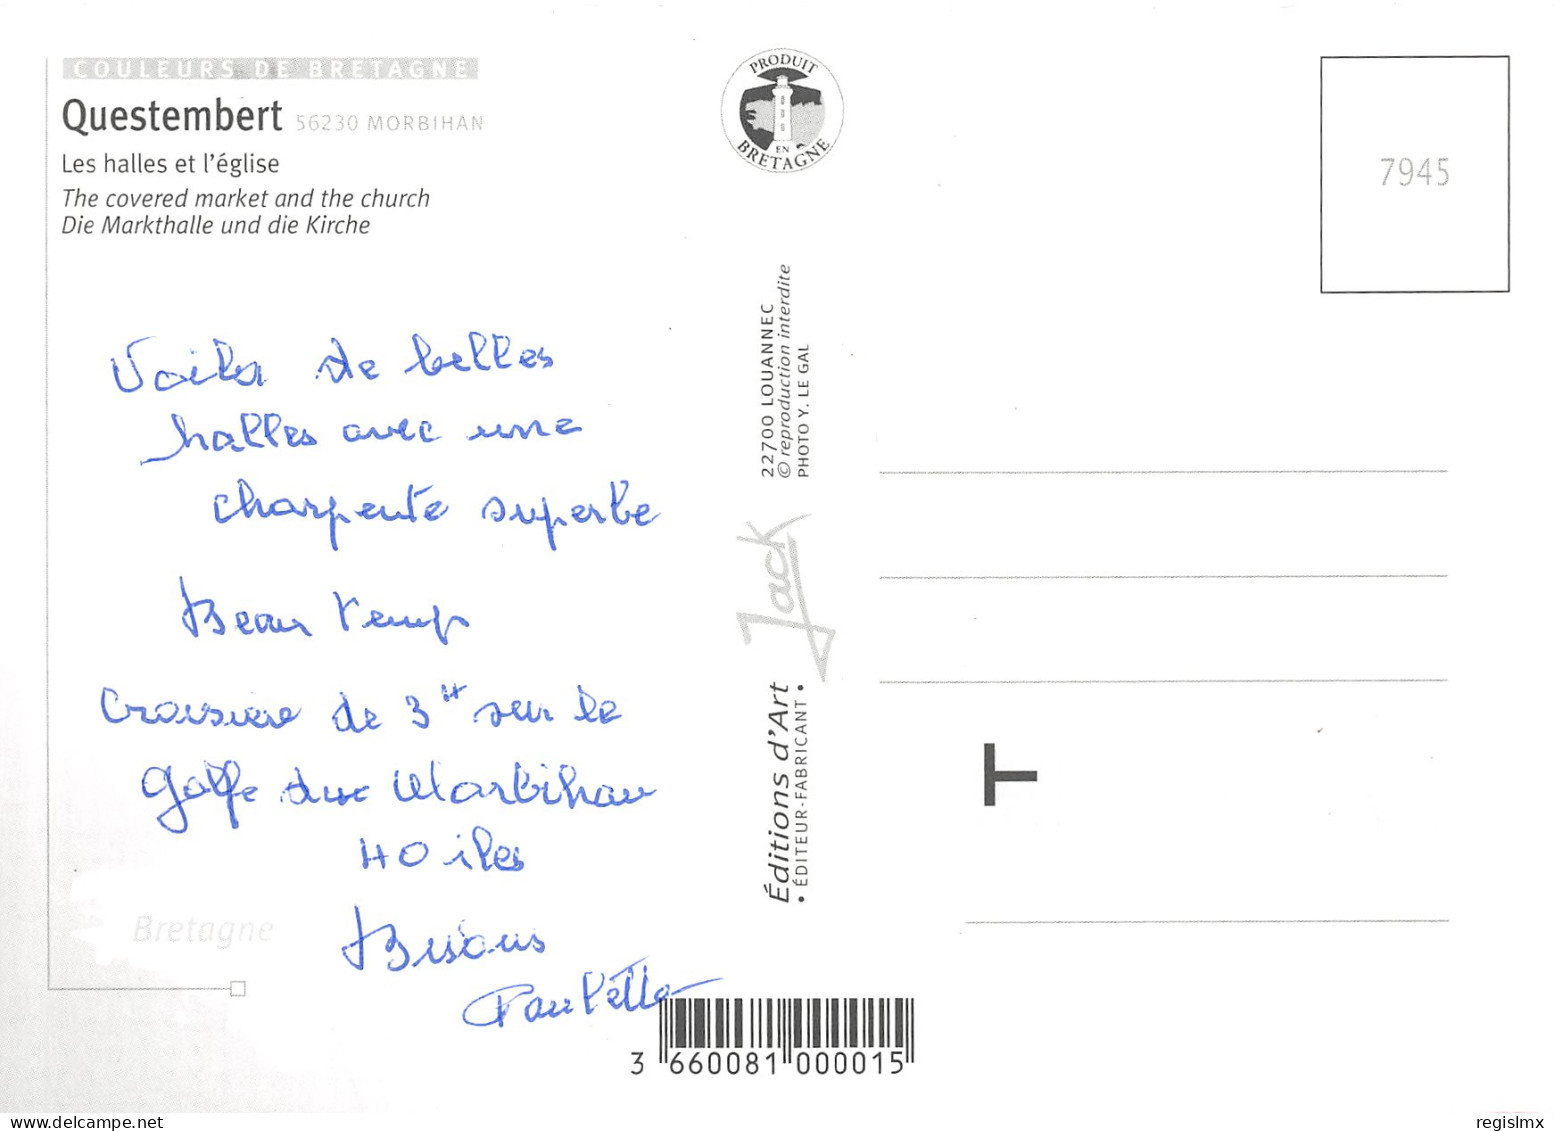 COULEURS DE BRETAGNE
Questembert 56230 MORBIHAN
Les halles et l'église
The covered market and the church
Die Markthalle und die Kirche
Voila de belles
halles avec une
charpente superbe
Beau temps
Croisière de 3H sur le
golfe du Morbihan
40 iles
Bisous
Paulette
Bretagne
PRODUIT
EN
BRETAGNE
22700 LOUANNEC
© reproduction interdite
PHOTO Y. LE GAL
Jack
Éditions d'Art
• ÉDITEUR-FABRICANT •
3 660081 000015
7945
T
Delcampe.net
regislmx